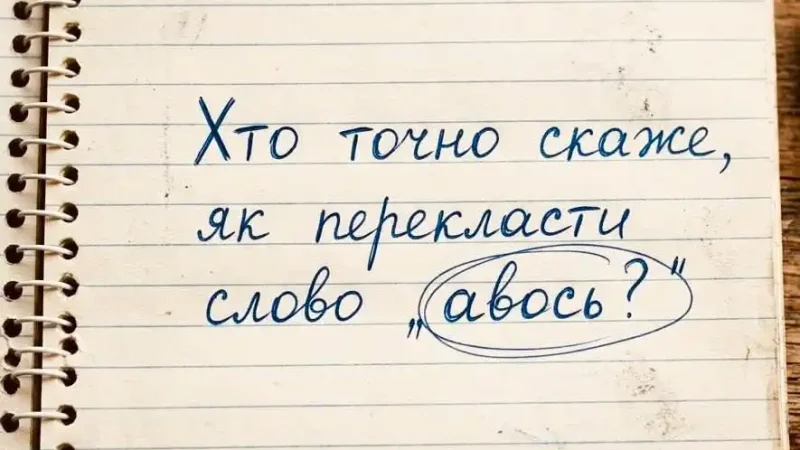 Хто точно скаже,
як перекласти
слово „авось?"